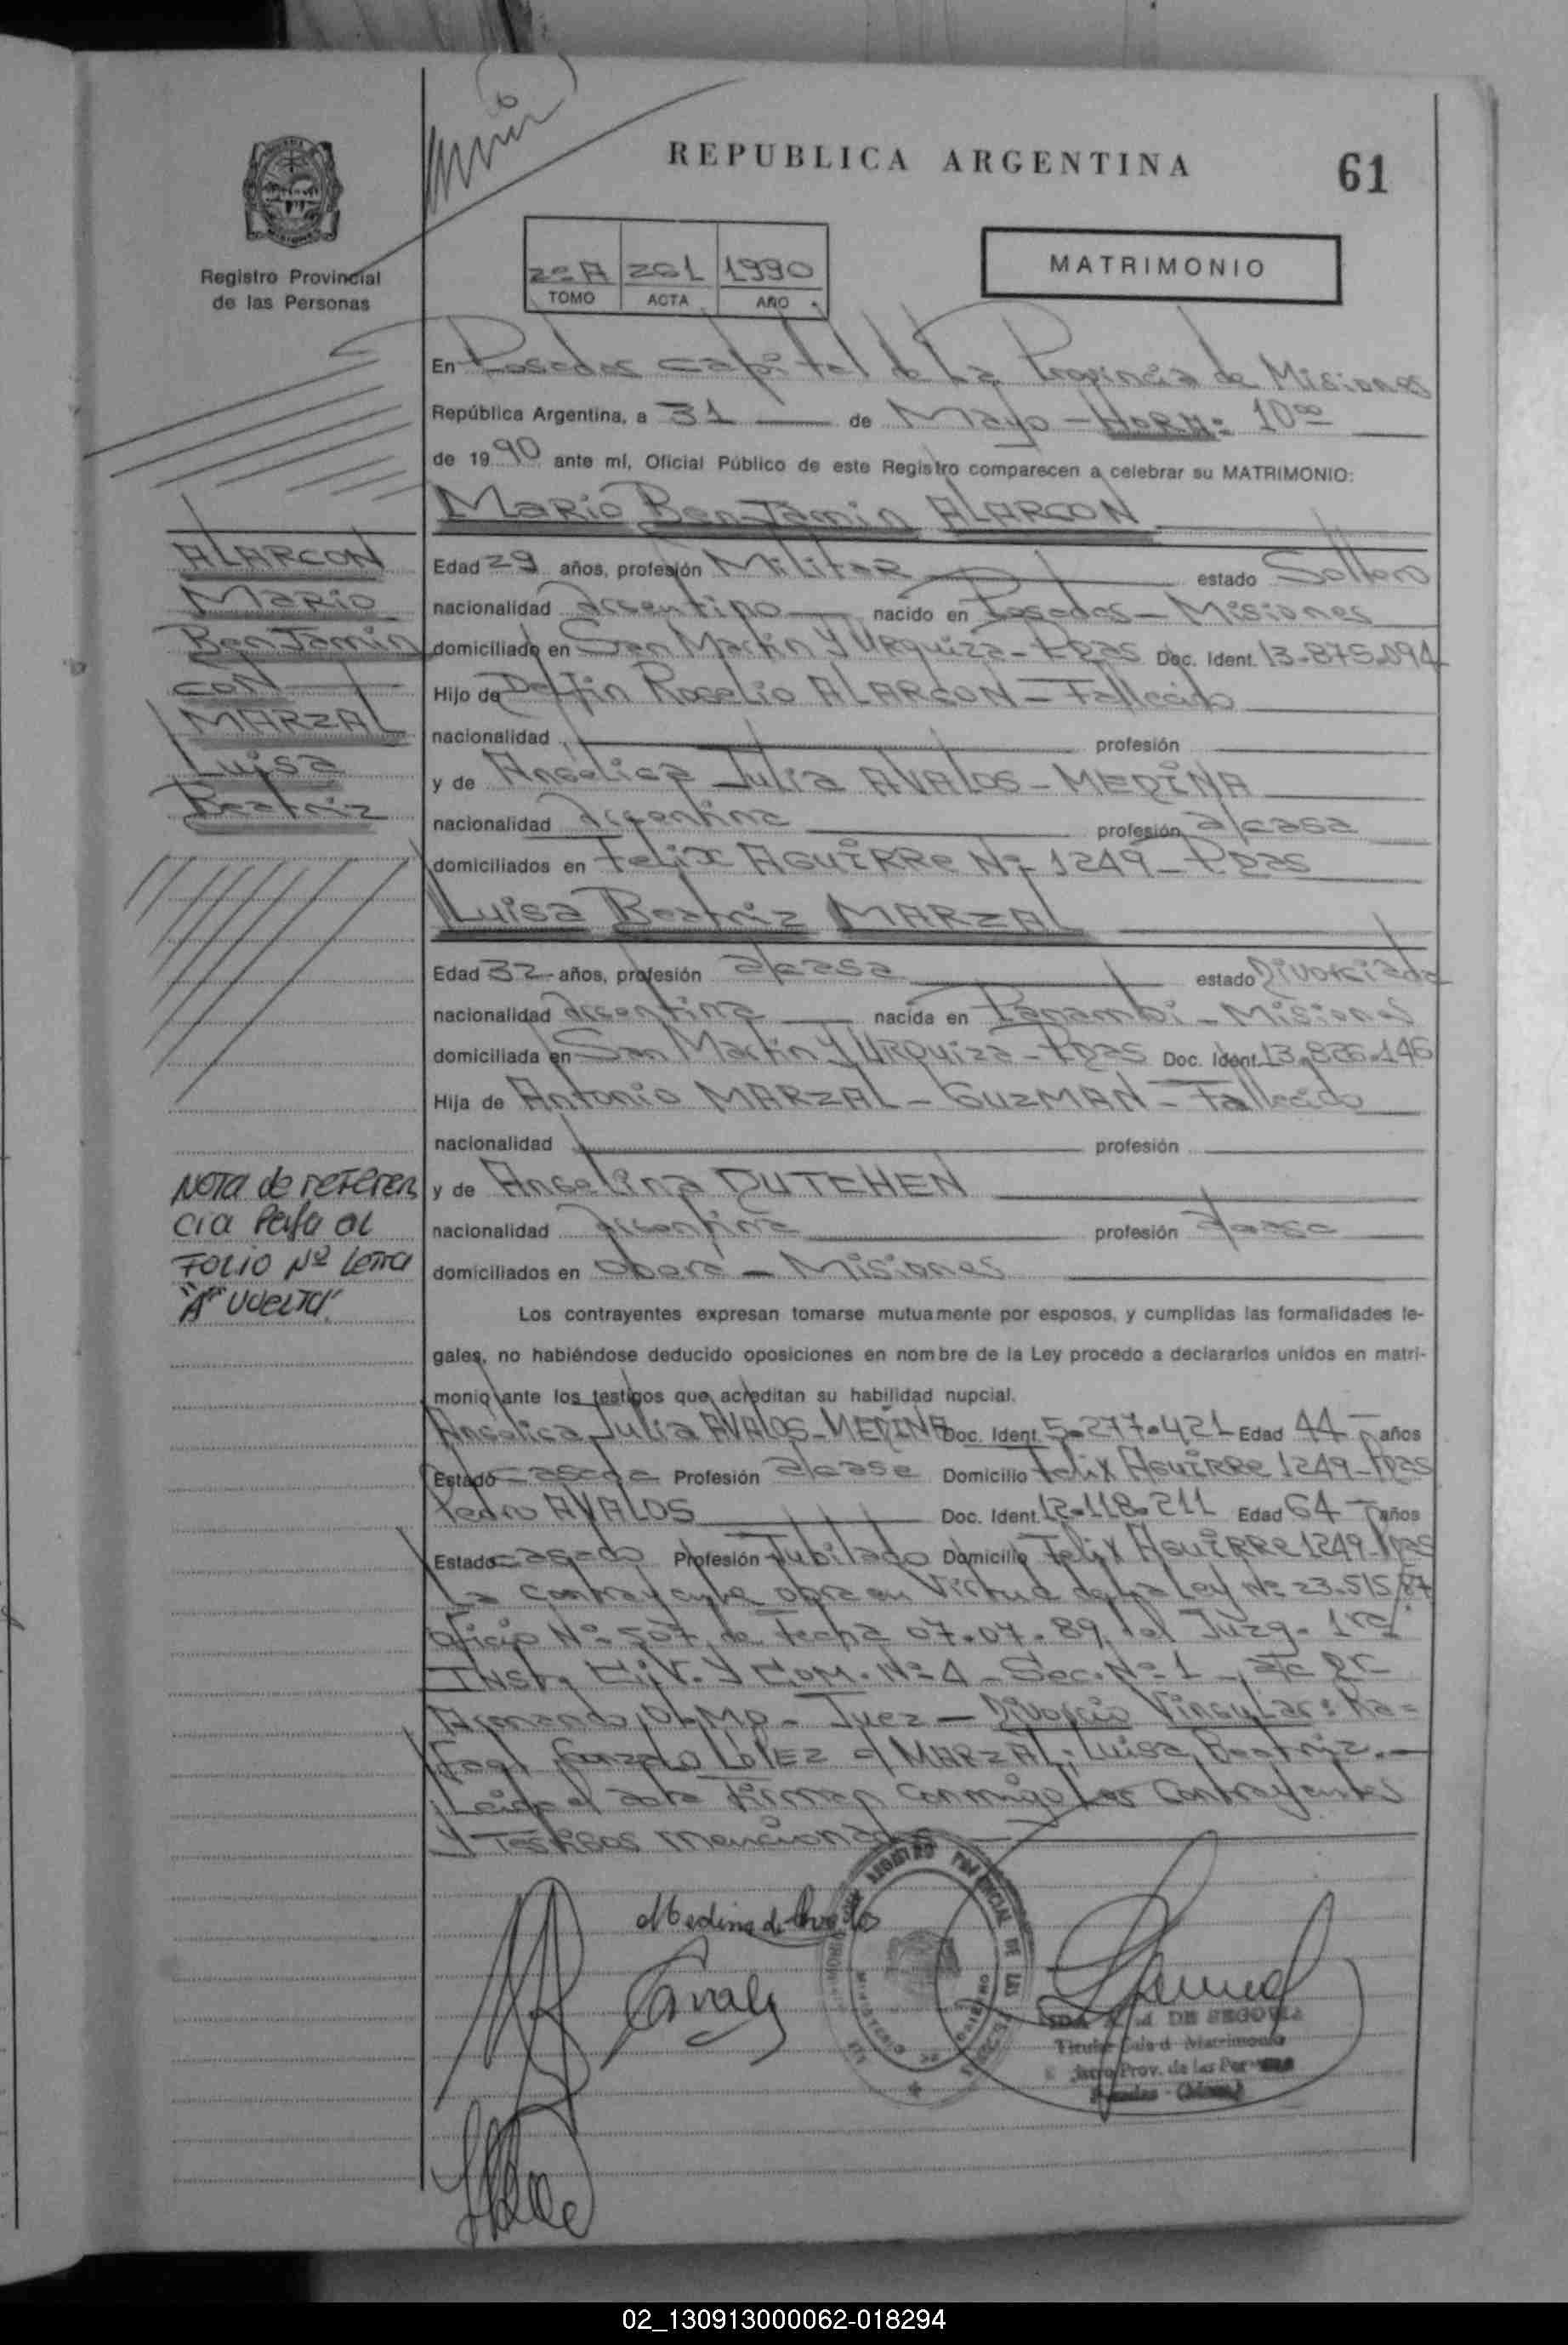 REPUBLICA ARGENTINA
61
Registro Provincial
de las Personas
2º A 261 1990
TOMO ACTA AÑO
MATRIMONIO
En Posadas capital de La Provincia de Misiones
República Argentina, a 31 de Mayo - HORA: 10⁰⁰
de 1990 ante mí, Oficial Público de este Registro comparecen a celebrar su MATRIMONIO:
Mario BenJamin ALARCON
Edad 29 años, profesión Militar estado Soltero
nacionalidad Argentino nacido en Posadas - Misiones
domiciliado en San Martin y URquiza - Pdas Doc. Ident. 13-875.094
Hijo de Delfin Rogelio ALARCON - Fallecido
nacionalidad profesión
y de Angelica Julia AVALOS - MEDINA
nacionalidad Argentina profesión a/casa
domiciliados en Felix AGUIRRe Nº 1249 - Pdas
Luisa Beatriz MARZAL
Edad 32 años, profesión a/casa estado Divorciada
nacionalidad Argentina nacida en Panambi - Misiones
domiciliada en San Martin y URquiza - Pdas Doc. Ident. 13.826.146
Hija de Antonio MARZAL - GUZMAN - Fallecido
nacionalidad profesión
y de Angelina DUTCHEN
nacionalidad Argentina profesión a/casa
domiciliados en Obera - Misiones
Los contrayentes expresan tomarse mutuamente por esposos, y cumplidas las formalidades le-
gales, no habiéndose deducido oposiciones en nombre de la Ley procedo a declararlos unidos en matri-
monio ante los testigos que acreditan su habilidad nupcial.
Angelica Julia AVALOS - MEDINA Doc. Ident. 5.277.421 Edad 44 años
Estado casada Profesión a/casa Domicilio Felix AGUIRRe 1249 - Pdas
Pedro AVALOS Doc. Ident. 12.118.211 Edad 64 años
Estado casado Profesión Jubilado Domicilio Felix AGUIRRe 1249 - Pdas
La contrayente obra en Virtud de La Ley Nº 23.515/87
Oficio Nº 507, de Fecha 07.07.89, del Juzg. 1ra
INst. Civ. y Com. Nº 4 - Sec. Nº 1 - a/c Dr
Armando OLMO - Juez - Divorcio Vincular: Ra=
fael Gonzalo LOPEZ c/ MARZAL, Luisa Beatriz.
Leida el acta Firman conmigo Los Contrayentes
y Testigos mencionados
ALARCON
Mario
BenJamin
CON
MARZAL
Luisa
Beatriz
NOTA de referen
cia Pasa al
FOLIO Nº Letra
"A" VUELTA.
Medina de Avalos
DE SEGOVIA
Prov. de las Personas
02_130913000062-018294